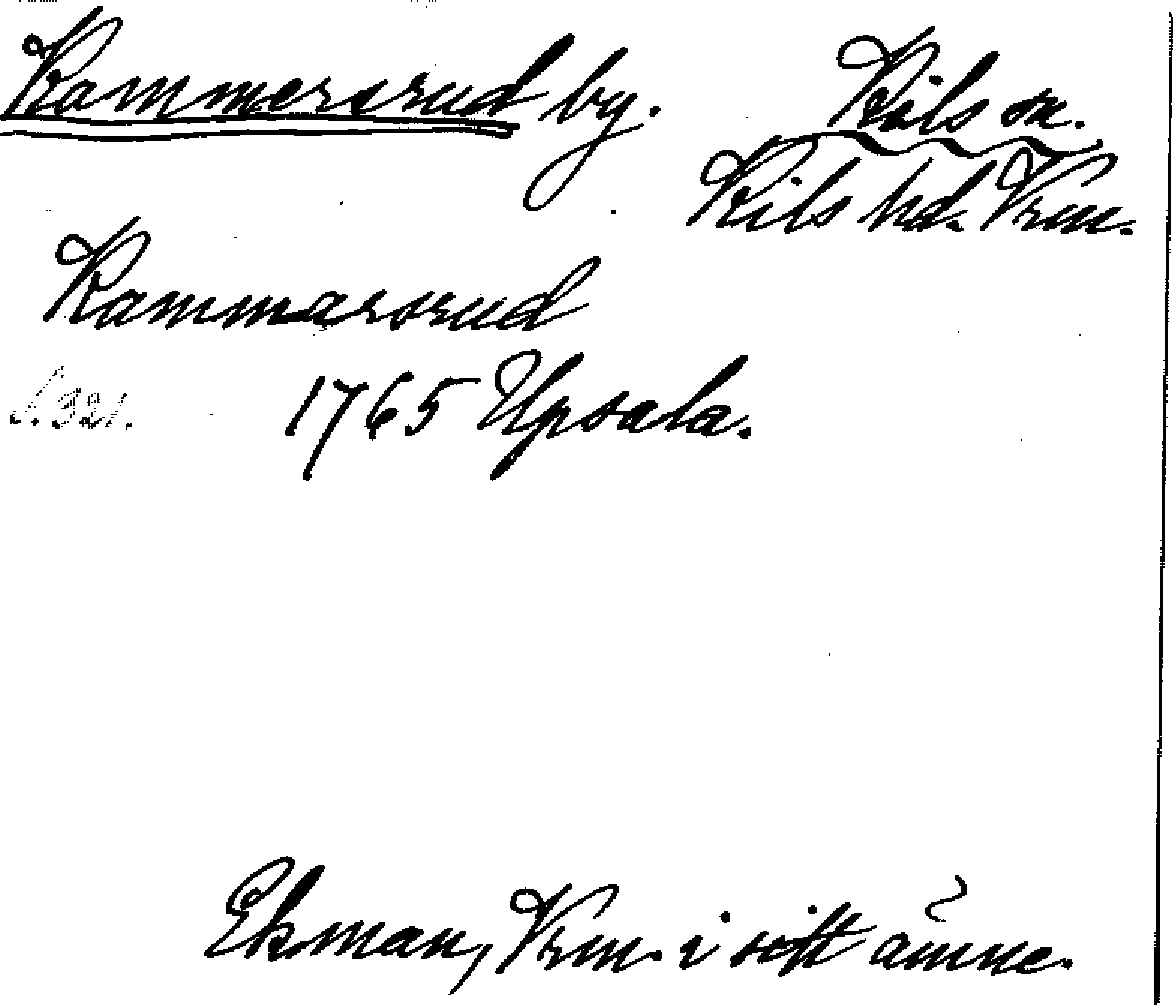 Kammersrud by. Kils sn.
Kils hd. Vrm.
Kammarsrud
s. 321. 1765 Upsala.
Ekman, Vrm. i sitt ämne.